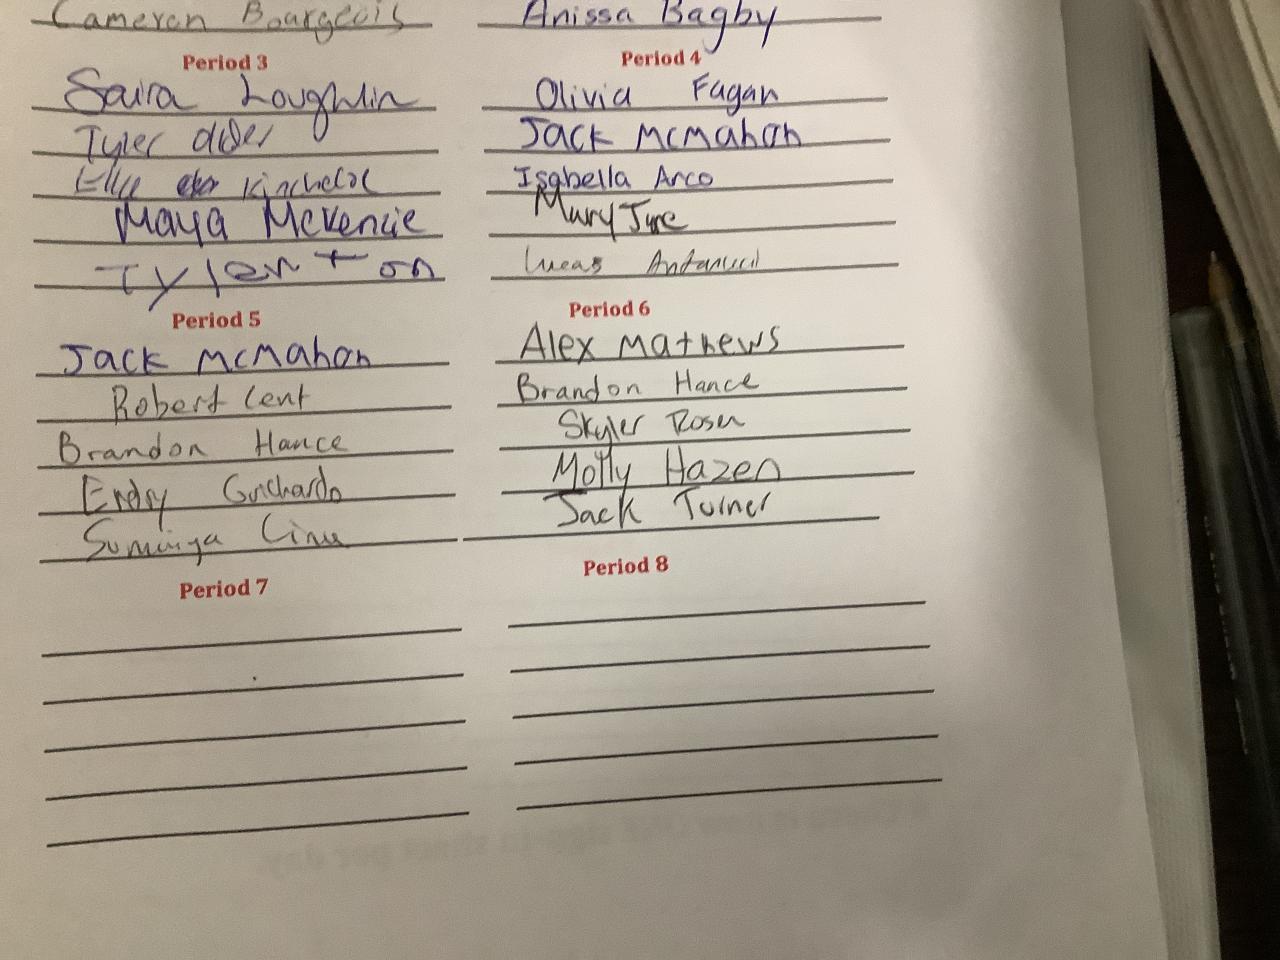 Cameron Bourgeois
Anissa Bagby
Period 3
Saira Loughlin
Tyler
Kincheloe
Maya McKencie
Tyler
Period 4
Olivia Fagan
Jack McMahon
Isabella Arco
Mary
Lucas
Period 5
Jack McMahon
Robert Cent
Brandon Hance
Guchardo
Period 6
Alex Mathews
Brandon Hance
Skyler Rosen
Molly Hazen
Jack Turner
Period 7
Period 8